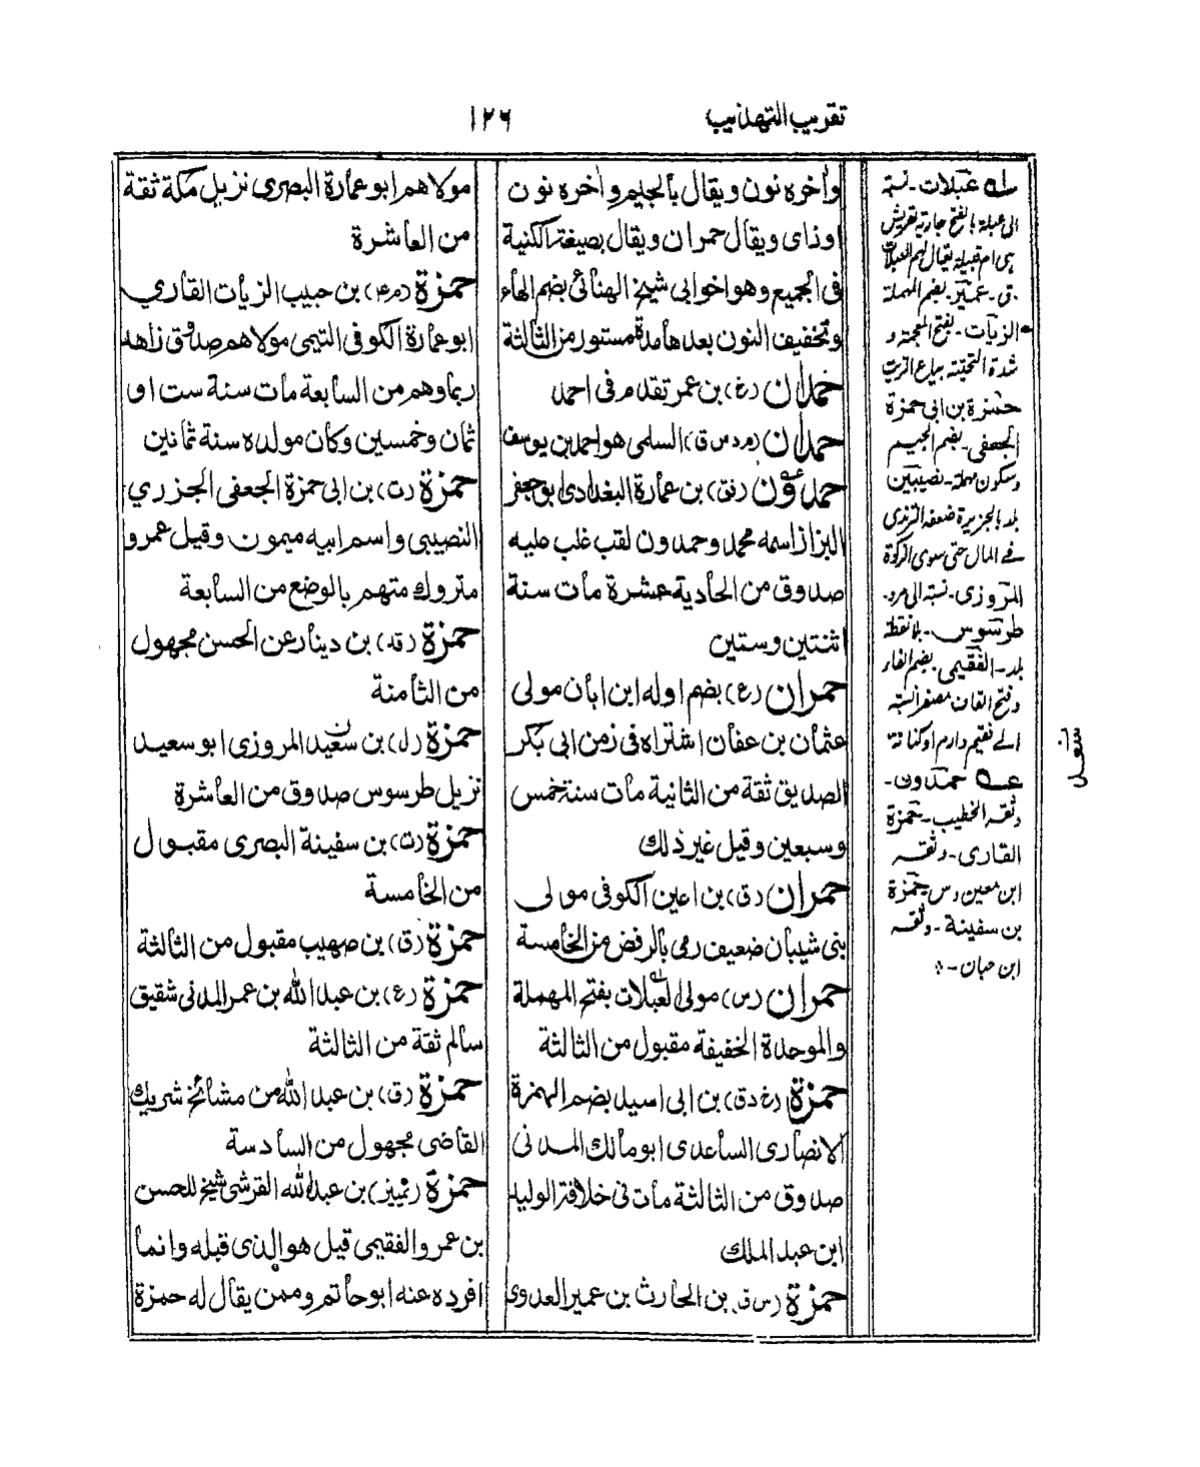 تقريب التهذيب
١٢٦
واٰخره نون ويقال بالجيم واخره نون
اوذاى ويقال حمران ويقال بصيغة الكنية
فى الجميع وهواخوابى شيخ الهنائى بضم الهاء
وتخفيف النون بعدها مدة مستور من الثالثة
حمدان (غ) بن عمر تقدم فى احمد
حمدان (م د س ق) السلمى هواحمد بن يوسف
حمدون (فق) بن عمارة البغدادى ابو جعفر
البزاز اسمه محمد وحمدون لقب غلب عليه
صدوق من الحادية عشرة مات سنة
اثنتين وستين
حمران (ع) بضم اوله ابن ابان مولى
عثمان بن عفان اشتراه فى زمن ابى بكر
الصديق ثقة من الثانية مات سنة خمس
وسبعين وقيل غير ذلك
حمران (ق) بن اعين الكوفى مولى
بنى شيبان ضعيف رمى بالرفض من الخامسة
حمران (س) مولى العبلات بفتح المهملة
والموحدة الخفيفة مقبول من الثالثة
حمزة (خ د ق) بن ابى اسيد بضم الهمزة
الانصارى الساعدى ابو مالك المدنى
صدوق من الثالثة مات فى خلافة الوليد
ابن عبد الملك
حمزة (س ق) بن الحارث بن عمير العدوى
مولاهم ابو عمارة البصرى نزيل مكة ثقة
من العاشرة
حمزة (م ع) بن حبيب الزيات القاري
ابو عمارة الكوفى التيمى مولاهم صدوق زاهد
ربما وهم من السابعة مات سنة ست او
ثمان وخمسين وكان مولده سنة ثمانين
حمزة (ت) بن ابى حمزة الجعفى الجزري
النصيبى واسم ابيه ميمون وقيل عمرو
متروك متهم بالوضع من السابعة
حمزة (قد) بن دينار عن الحسن مجهول
من الثامنة
حمزة (ل) بن سعيد المروزى ابو سعيد
نزيل طرسوس صدوق من العاشرة
حمزة (ت) بن سفينة البصرى مقبول
من الخامسة
حمزة (ق) بن صهيب مقبول من الثالثة
حمزة (ع) بن عبد الله بن عمر المدنى شقيق
سالم ثقة من الثالثة
حمزة (ق) بن عبد الله من مشائخ شريك
القاضى مجهول من السادسة
حمزة (تمييز) بن عبد الله القرشى شيخ للحسن
بن عمرو الفقيمى قيل هو الذى قبله وانما
افرده عنه ابو حاتم وممن يقال له حمزة
له عبلات - نسبة
الى عبلة بالفتح جارية لقريش
هى ام قبيلة يقال لهم العبلات
ق - عمير - بضم المهملة
الزيات - بفتح المعجمة و
شدة التحتية بياع الزيت
حمزة بن ابى حمزة
الجعفى - بضم الجيم
وسكون مهملة - نصيبين
بلد بالجزيرة ضعفه الترمذى
المروزى - نسبة الى مرو -
طرسوس - بلا نقطة
بلد - الفقيمى - بضم الفاء
وفتح القاف مصغر نسبة
الے فقيم دارم او كنانة
عه حمدون -
وثقه الخطيب - حمزة
القارى - وثقه
ابن معين و س - حمزة
بن سفينة - وثقه
ابن حبان -